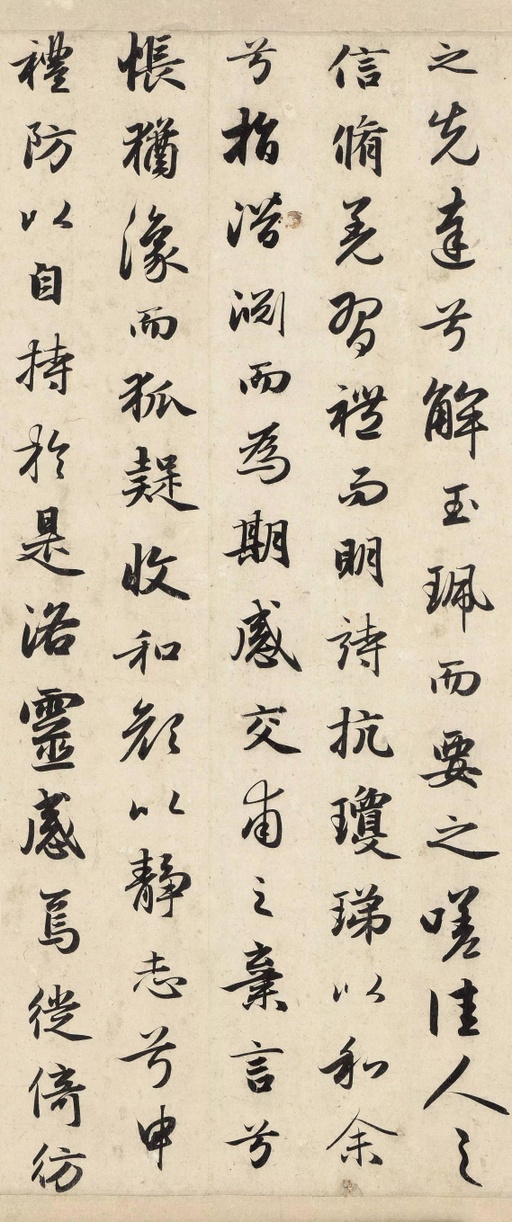 之先達兮解玉珮而要之嗟佳人之
信脩羌習禮而明詩抗瓊珶以和余
兮指潛渊而為期感交甫之棄言兮
悵猶㵮而狐疑收和顏以靜志兮申
禮防以自持於是洛靈感焉徙倚彷